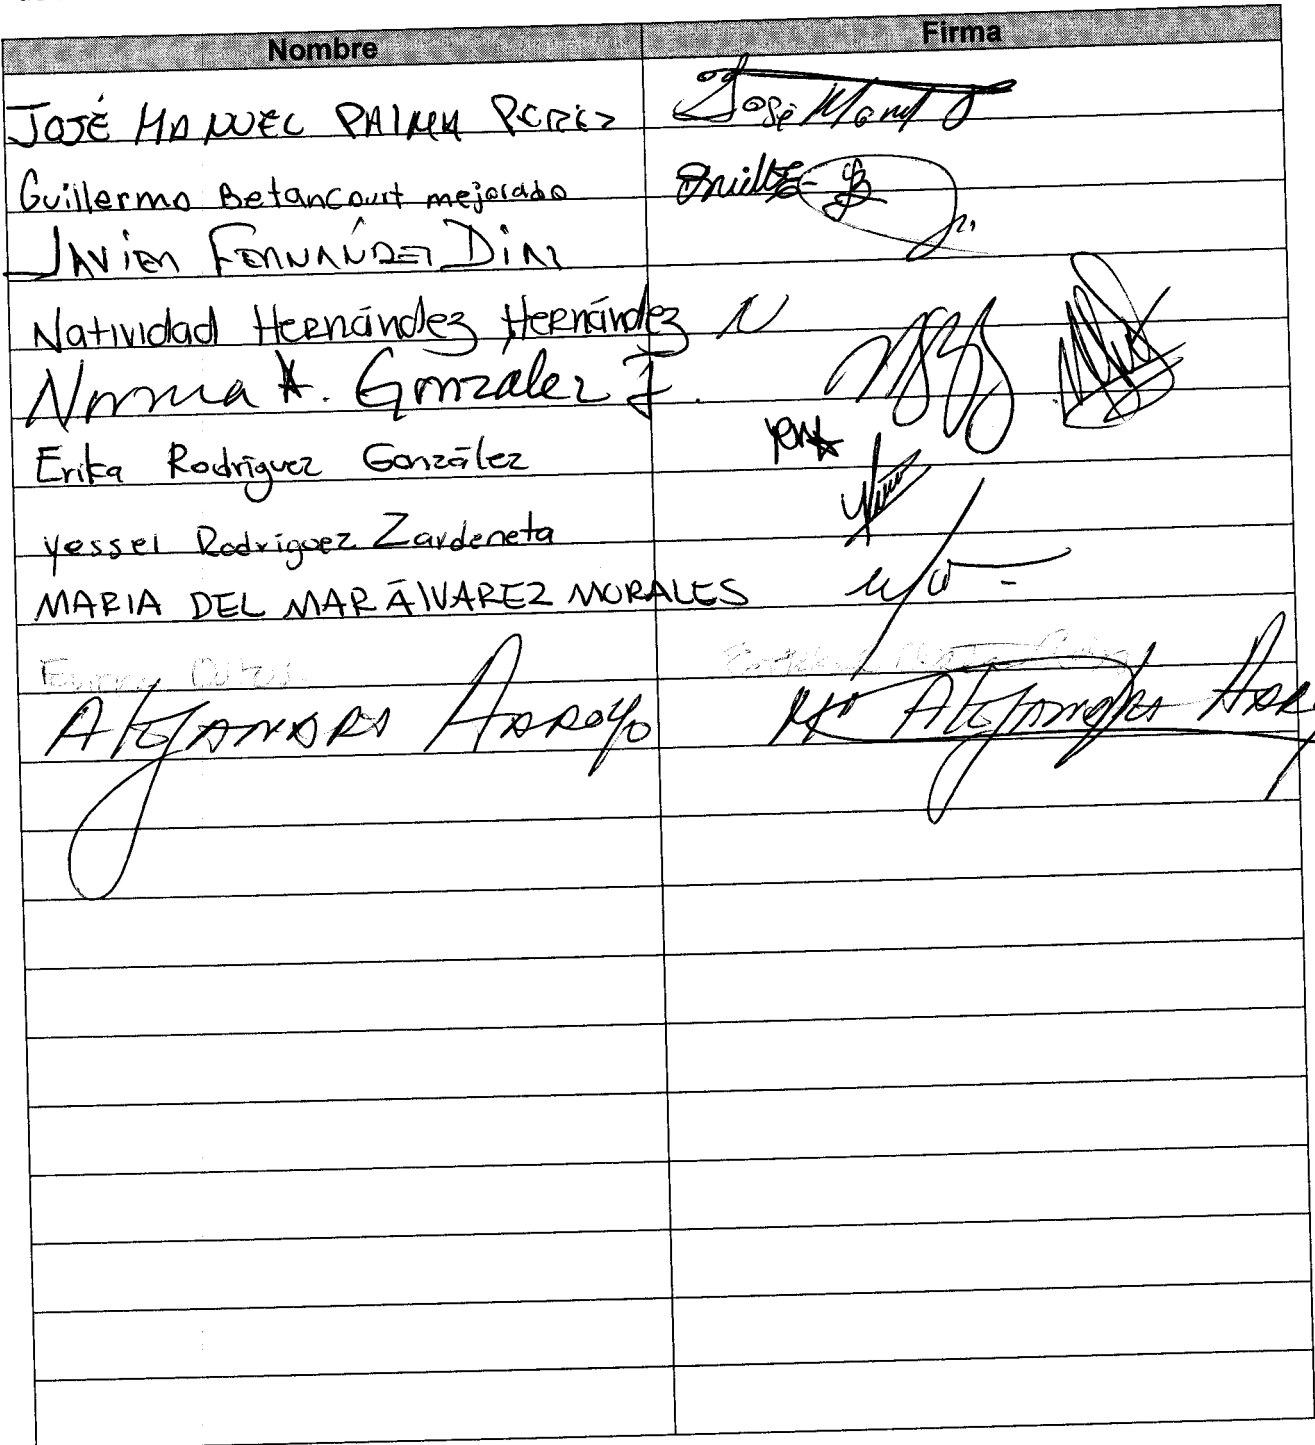 Nombre Firma
JOSÉ MANUEL PALMA PEREZ José Manuel
Guillermo Betancourt mejorado
JAVIER FERNÁNDEZ DIAZ
Natividad Hernández Hernández N
Norma A. González J.
Erika Rodríguez González
Yessel Rodríguez Zardeneta
MARIA DEL MAR ÁLVAREZ MORALES
ALEJANDRA ARROYO Ma ALEJANDRA